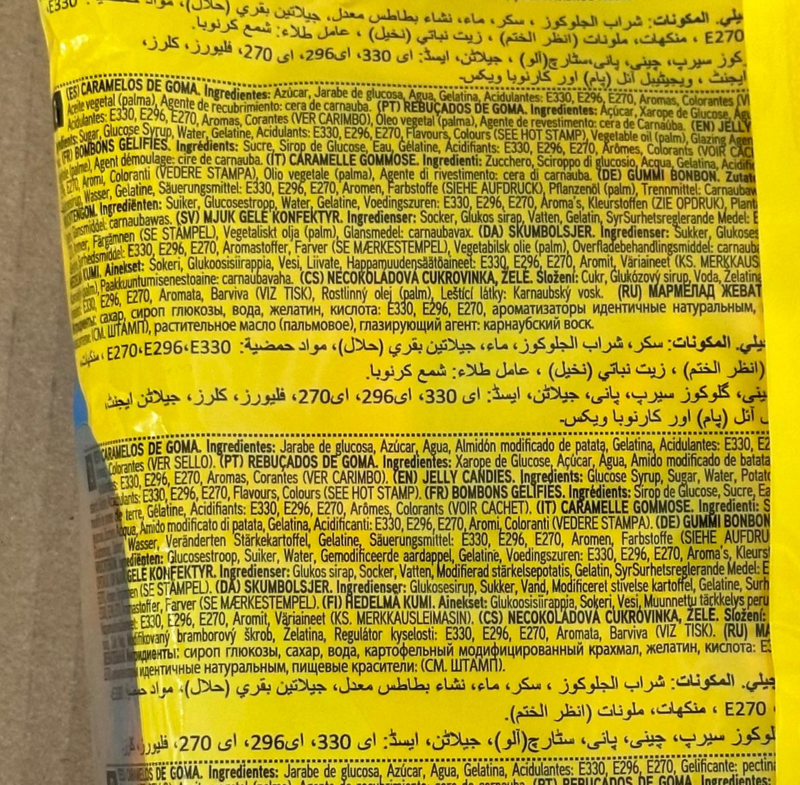 جيلي. المكونات: شراب الجلوكوز ، سكر، ماء، نشاء بطاطس معدل، جيلاتين بقري (حلال)، مواد حمضية: E330،
E270 ، منكهات، ملونات (انظر الختم) ، زيت نباتي (نخيل) ، عامل طلاء: شمع كرنوبا.
کوز سیرپ، چینی، پانی،سٹارچ(آلو) ، جیلاٹن، ایسڈ: ای 330، ای296، ای 270، فلیورز، کلرز،
ایجنٹ ، ویجیٹیبل آئل (پام) اور کارنوبا ویکس۔
(ES) CARAMELOS DE GOMA. Ingredientes: Azúcar, Jarabe de glucosa, Agua, Gelatina, Acidulantes: E330, E296, E270, Aromas, Colorantes
Aceite vegetal (palma), Agente de recubrimiento: cera de carnauba. (PT) REBUÇADOS DE GOMA. Ingredientes: Açúcar, Xarope de Glucose,
Acidulantes: E330, E296, E270, Aromas, Corantes (VER CARIMBO), Óleo vegetal (palma), Agente de revestimento: cera de Carnaúba. (EN) JELLY
Sugar, Glucose Syrup, Water, Gelatine, Acidulants: E330, E296, E270, Flavours, Colours (SEE HOT STAMP), Vegetable oil (palm), Glazing
(FR) BOMBONS GELIFIES. Ingrédients: Sucre, Sirop de Glucose, Eau, Gélatine, Acidifiants: E330, E296, E270, Arômes, Colorants (VOIR
(palme), Agent démoulage: cire de carnauba. (IT) CARAMELLE GOMMOSE. Ingredienti: Zucchero, Sciroppo di glucosio, Acqua, Gelatina,
E270, Aromi, Coloranti (VEDERE STAMPA), Olio vegetale (palma), Agente di rivestimento: cera di carnauba. (DE) GUMMI BONBON.
Wasser, Gelatine, Säuerungsmittel: E330, E296, E270, Aromen, Farbstoffe (SIEHE AUFDRUCK), Pflanzenöl (palm), Trennmittel:
Ingrediënten: Suiker, Glucosestroop, Water, Gelatine, Voedingszuren: E330, E296, E270, Aroma's, Kleurstoffen (ZIE OPDRUK),
carnaubawas. (SV) MJUK GELÉ KONFEKTYR. Ingredienser: Socker, Glukos sirap, Vatten, Gelatin, SyrSurhetsreglerande Medel:
Färgämnen (SE STÄMPEL), Vegetaliskt olja (palm), Glansmedel: carnaubavax. (DA) SKUMBOLSJER. Ingredienser: Sukker,
E330, E296, E270, Aromastoffer, Farver (SE MÆRKESTEMPEL), Vegetabilsk olie (palm), Overfladebehandlingsmiddel:
KUMI. Ainekset: Sokeri, Glukoosisiirappia, Vesi, Liivate, Happamuudensäätöaineet: E330, E296, E270, Aromit, Väriaineet (KS.
Paakkuuntumisenestoaine: carnaubavaha. (CS) NECOKOLÁDOVÁ CUKROVINKA, ŽELÉ. Složení: Cukr, Glukózový sirup, Voda,
E330, E296, E270, Aromata, Barviva (VIZ TISK), Rostlinný olej (palm), Leštící látky: Karnaubský vosk. (RU) МАРМЕЛАД
сахар, сироп глюкозы, вода, желатин, кислота: E330, E296, E270, ароматизаторы идентичные натуральным,
(СМ. ШТАМП), растительное масло (пальмовое), глазирующий агент: карнаубский воск.
جيلي. المكونات: سكر، شراب الجلوكوز، ماء، جيلاتين بقري (حلال)، مواد حمضية: E270،E296،E330 ،
(انظر الختم) ، زيت نباتي (نخيل) ، عامل طلاء: شمع كرنوبا.
چینی، گلوکوز سیرپ، پانی، جیلاٹن، ایسڈ: ای 330، ای296، ای270، فلیورز، کلرز، جیلاٹن ایجنٹ،
آئل (پام) اور کارنوبا ویکس۔
CARAMELOS DE GOMA. Ingredientes: Jarabe de glucosa, Azúcar, Agua, Almidón modificado de patata, Gelatina, Acidulantes: E330,
Colorantes (VER SELLO). (PT) REBUÇADOS DE GOMA. Ingredientes: Xarope de Glucose, Açúcar, Água, Amido modificado de batata
E330, E296, E270, Aromas, Corantes (VER CARIMBO). (EN) JELLY CANDIES. Ingredients: Glucose Syrup, Sugar, Water,
E330, E296, E270, Flavours, Colours (SEE HOT STAMP). (FR) BOMBONS GELIFIES. Ingrédients: Sirop de Glucose, Sucre,
de terre, Gélatine, Acidifiants: E330, E296, E270, Arômes, Colorants (VOIR CACHET). (IT) CARAMELLE GOMMOSE. Ingredienti:
Amido modificato di patata, Gelatina, Acidificanti: E330, E296, E270, Aromi, Coloranti (VEDERE STAMPA). (DE) GUMMI BONBON
Wasser, Veränderten Stärkekartoffel, Gelatine, Säuerungsmittel: E330, E296, E270, Aromen, Farbstoffe (SIEHE
Glucosestroop, Suiker, Water, Gemodificeerde aardappel, Gelatine, Voedingszuren: E330, E296, E270, Aroma's,
GELÉ KONFEKTYR. Ingredienser: Glukos sirap, Socker, Vatten, Modifierad stärkelsepotatis, Gelatin, SyrSurhetsreglerande Medel:
(SE STÄMPEL). (DA) SKUMBOLSJER. Ingredienser: Glukosesirup, Sukker, Vand, Modificeret stivelse kartoffel, Gelatine,
Farver (SE MÆRKESTEMPEL). (FI) HEDELMÄ KUMI. Ainekset: Glukoosisiirappia, Sokeri, Vesi, Muunnettu täckkelys
E330, E296, E270, Aromit, Väriaineet (KS. MERKKAUSLEIMASIN). (CS) NECOKOLÁDOVÁ CUKROVINKA, ŽELÉ. Složení:
bramborový škrob, Želatina, Regulátor kyselosti: E330, E296, E270, Aromata, Barviva (VIZ TISK). (RU)
сироп глюкозы, сахар, вода, картофельный модифицированный крахмал, желатин, кислота:
идентичные натуральным, пищевые красители: (СМ. ШТАМП).
جيلي. المكونات: شراب الجلوكوز ، سكر، ماء، نشاء بطاطس معدل، جيلاتين بقري (حلال)، مواد
E270 ، منكهات، ملونات (انظر الختم).
گلوکوز سیرپ، چینی، پانی، سٹارچ(آلو)، جیلاٹن، ایسڈ: ای 330، ای296، ای 270، فلیورز،
DE GOMA. Ingredientes: Jarabe de glucosa, Azúcar, Agua, Gelatina, Acidulantes: E330, E296, E270, Gelificante:
(PT) REBUÇADOS DE GOMA. Ingredientes: